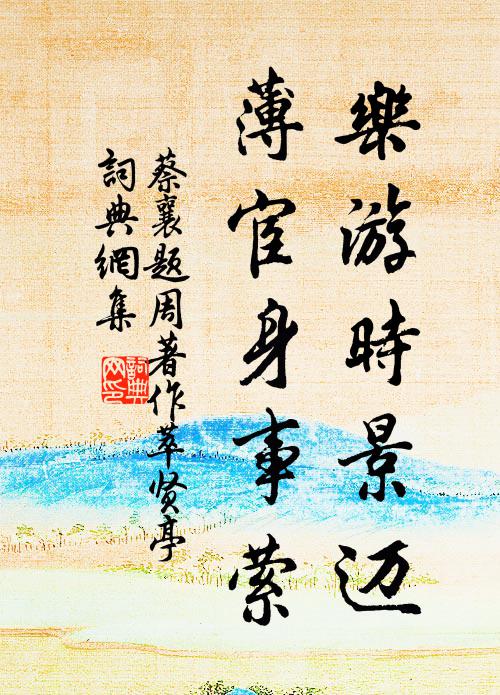 樂游時景迈
薄宦身事萦
蔡襄題周著作萃贤亭
詞典網集
詞典网印